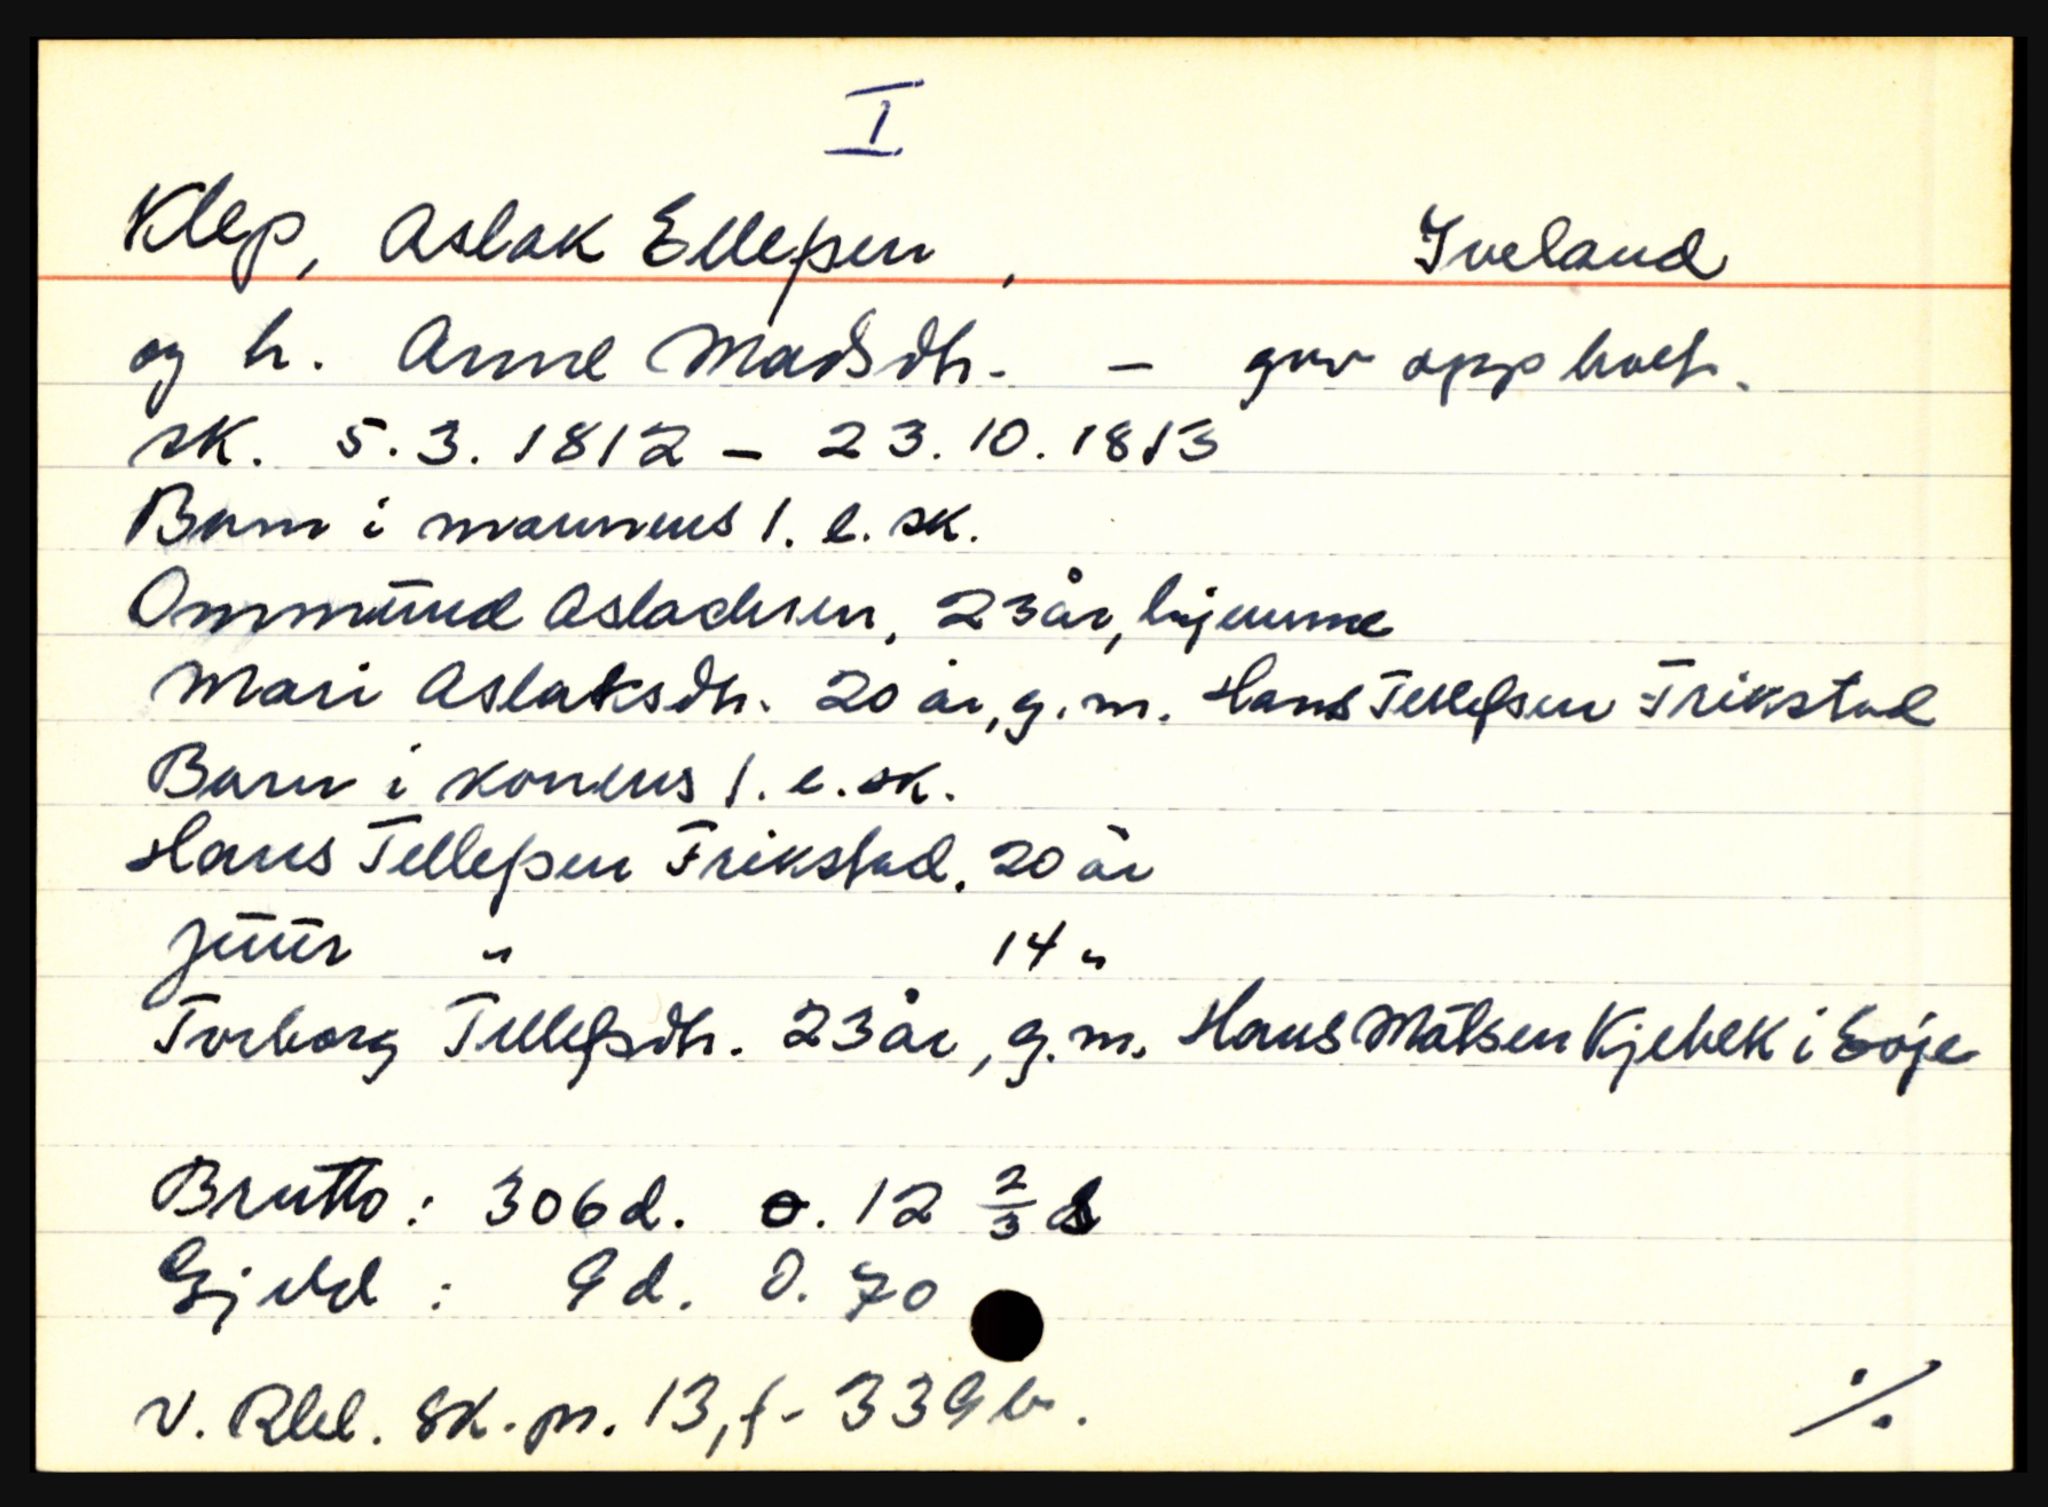 I
Klep, Aslak Ellefsen, Iveland
og h. Anne Madsdtr. - gav opp boets
sk. 5.3.1812 - 23.10.1813
Barn i mannens 1. e. sk.
Ommund Aslachsen, 23 år, hjemme
Mari Aslaksdtr. 20 år, g.m. Hans Tellefsen Frikstad
Barn i konens 1. e. sk.
Hans Tellefsen Frikstad. 20 år
Juur " 14 "
Torborg Tellefsdtr. 23 år, g.m. Hans Matsen Kjebek i Evje
Brutto: 306 d. 0. 12 2/3 s
Gjeld: 9 d. 0. 70
V. Rbl. sk. pr. 13, f. 339 b.
./.